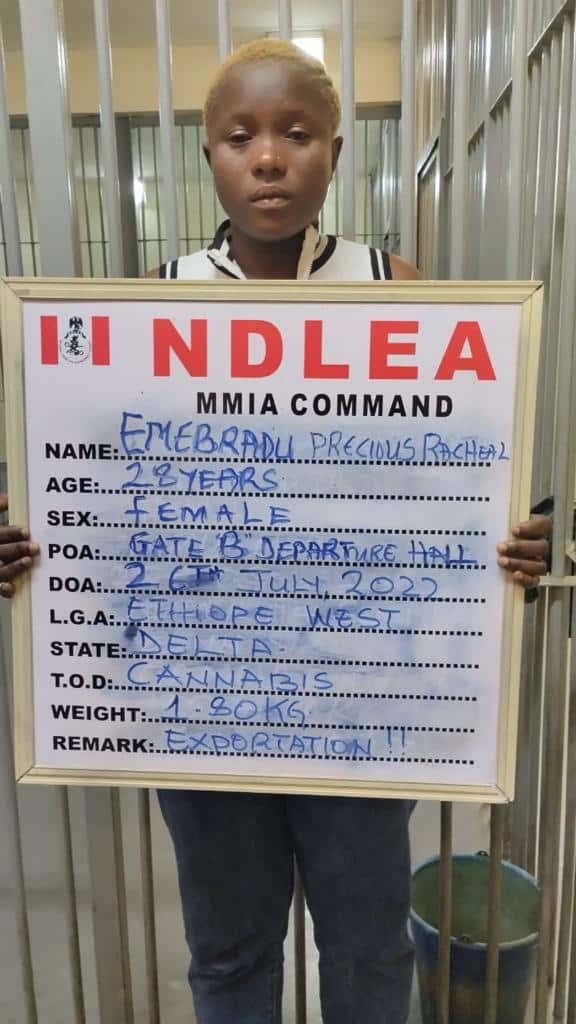 NDLEA
MMIA COMMAND
NAME: EMEBRADU PRECIOUS RACHEAL
AGE: 28 YEARS
SEX: FEMALE
POA: GATE "B" DEPARTURE HALL
DOA: 26TH JULY, 2022
L.G.A: ETHIOPE WEST
STATE: DELTA.
T.O.D: CANNABIS
WEIGHT: 1.80KG
REMARK: EXPORTATION !!